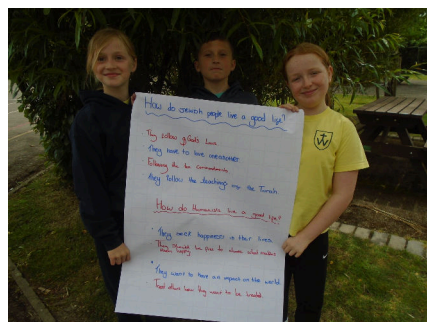 How do Jewish people live a good life?
They follow God's Laws
They have to love
the ten commandments
They follow the teachings in the Torah
How do Humanists live a good life?
They seek happiness in their lives
They should be free to choose what makes them happy
They want to have an impact on the world
Treat others how they want to be treated.